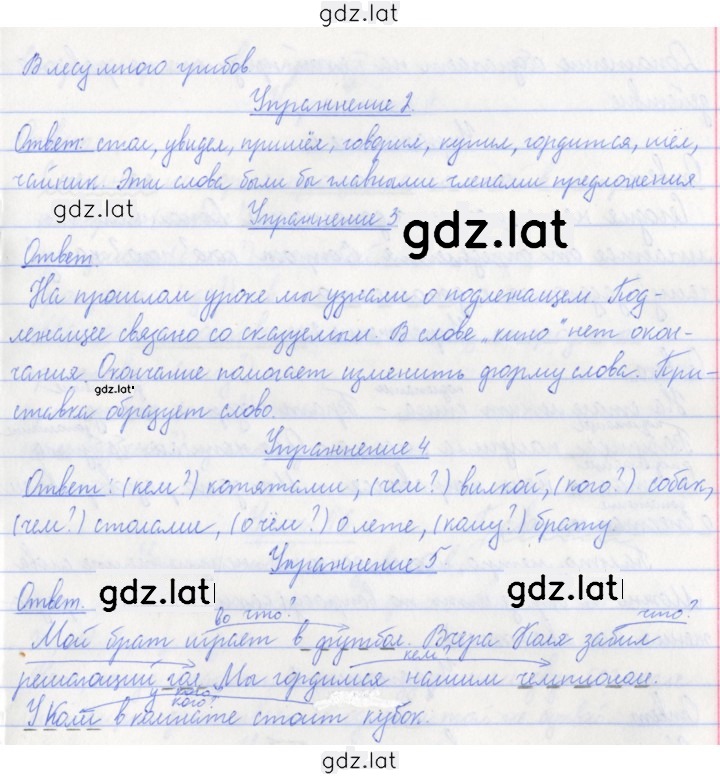 gdz.lat
В лесу много грибов
Упражнение 2.
Ответ: стол, увидел, пришёл, говорил, купил, гордится, шёл,
чайник. Эти слова были бы главными членами предложения
gdz.lat
Упражнение 3
gdz.lat
Ответ.
На прошлом уроке мы узнали о подлежащем. Под-
лежащее связано со сказуемым. В слове „кино" нет окон-
чания. Окончание помогает изменить форму слова. При-
gdz.lat
ставка образует слово.
Упражнение 4
Ответ: (кем?) котятами, (чем?) вилкой, (кого?) собак,
(чем?) столами, (о чём?) о лете, (кому?) брату
Упражнение 5
gdz.lat
gdz.lat
Ответ.
во что? что?
Мой брат играет в футбол. Вчера Коля забил
кем
решающий гол. Мы гордимся нашим чемпионом.
у кого
кого?
У Коли в комнате стоит кубок.
gdz.lat